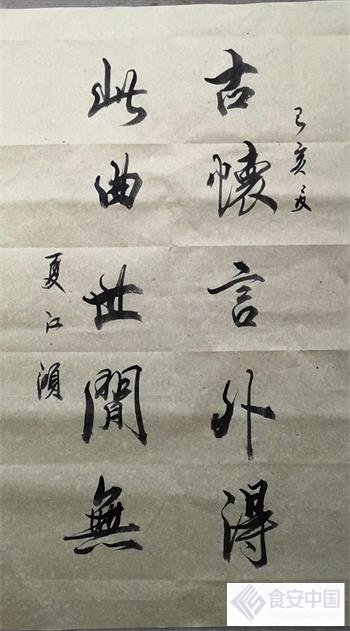 己亥夏
古懷言外得
此曲世閒無
夏江湏
食安中国
cnfoodsafety.com